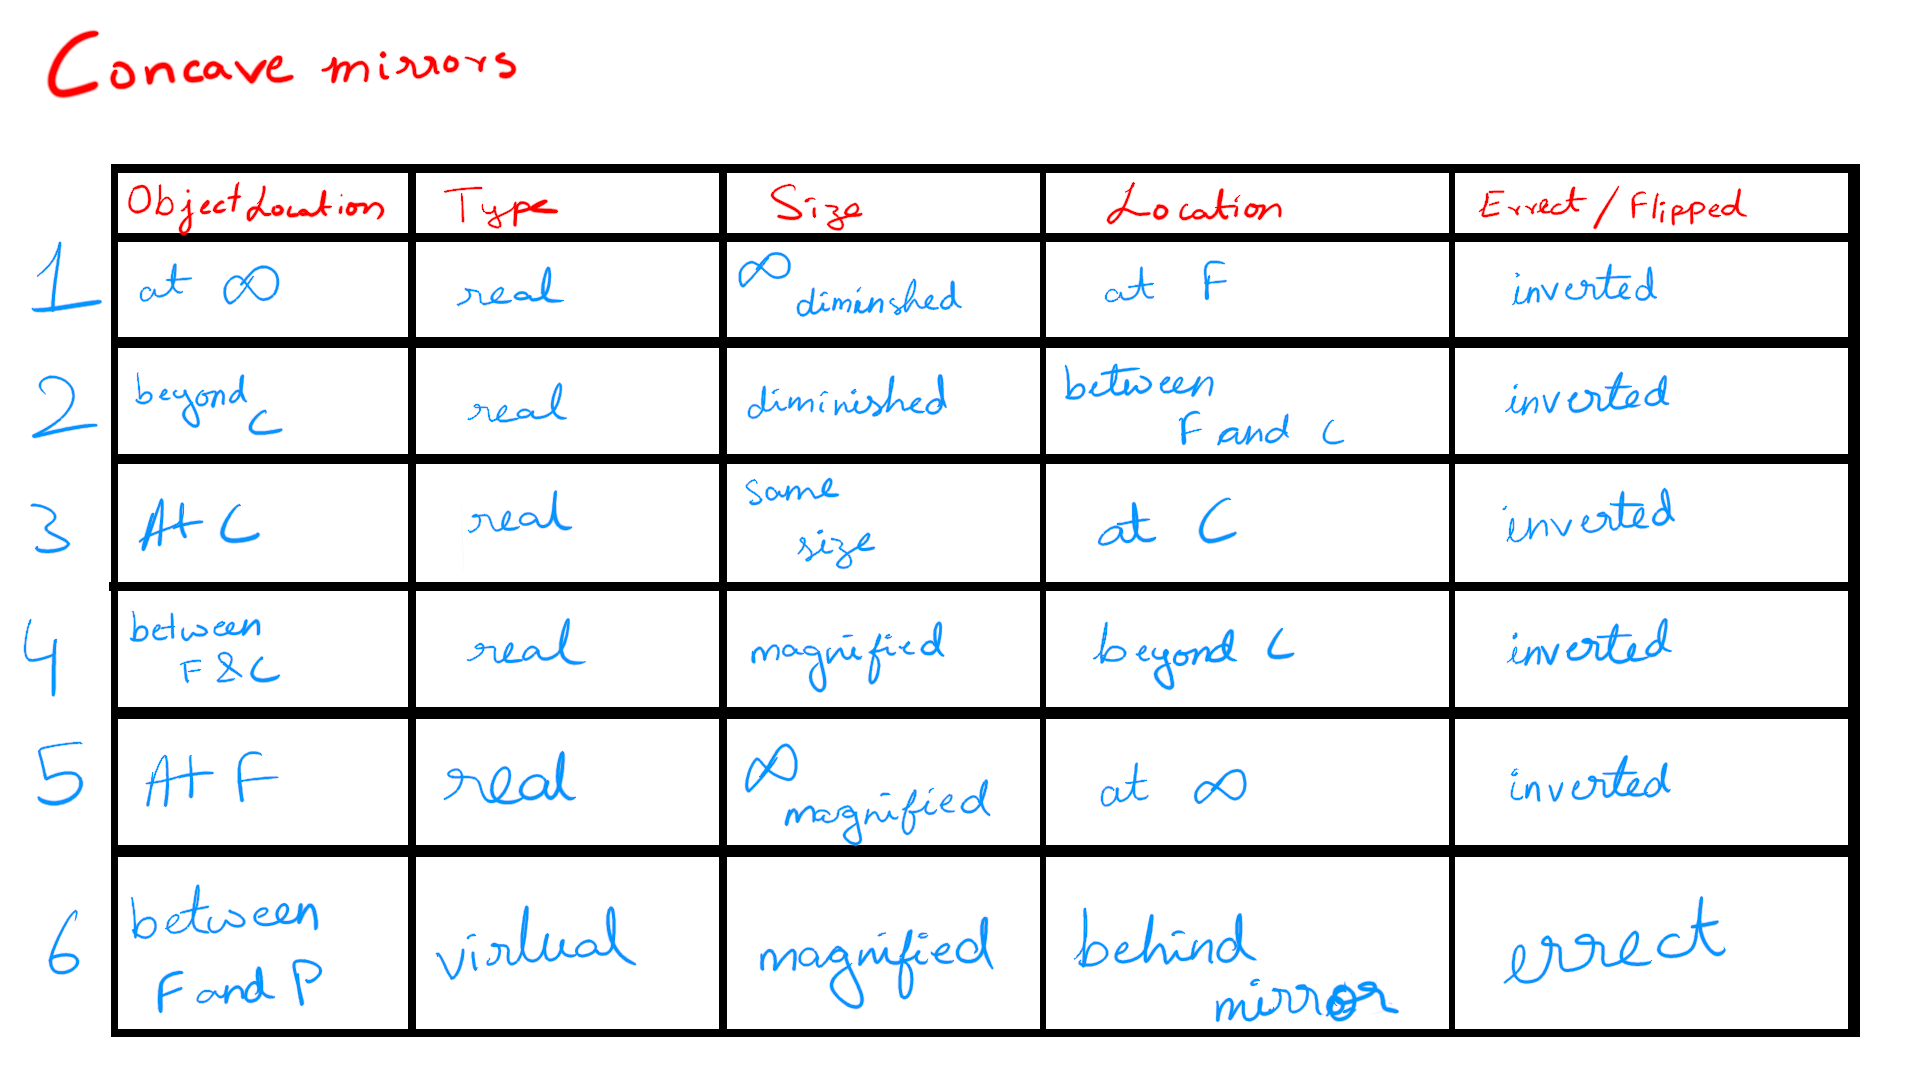 Concave mirrors
Object Location Type Size Location Errect / Flipped
1 at ∞ real ∞ diminshed at F inverted
2 beyond C real diminished between F and C inverted
3 At C real same size at C inverted
4 between F & C real magnified beyond C inverted
5 At F real ∞ magnified at ∞ inverted
6 between F and P virtual magnified behind mirror errect